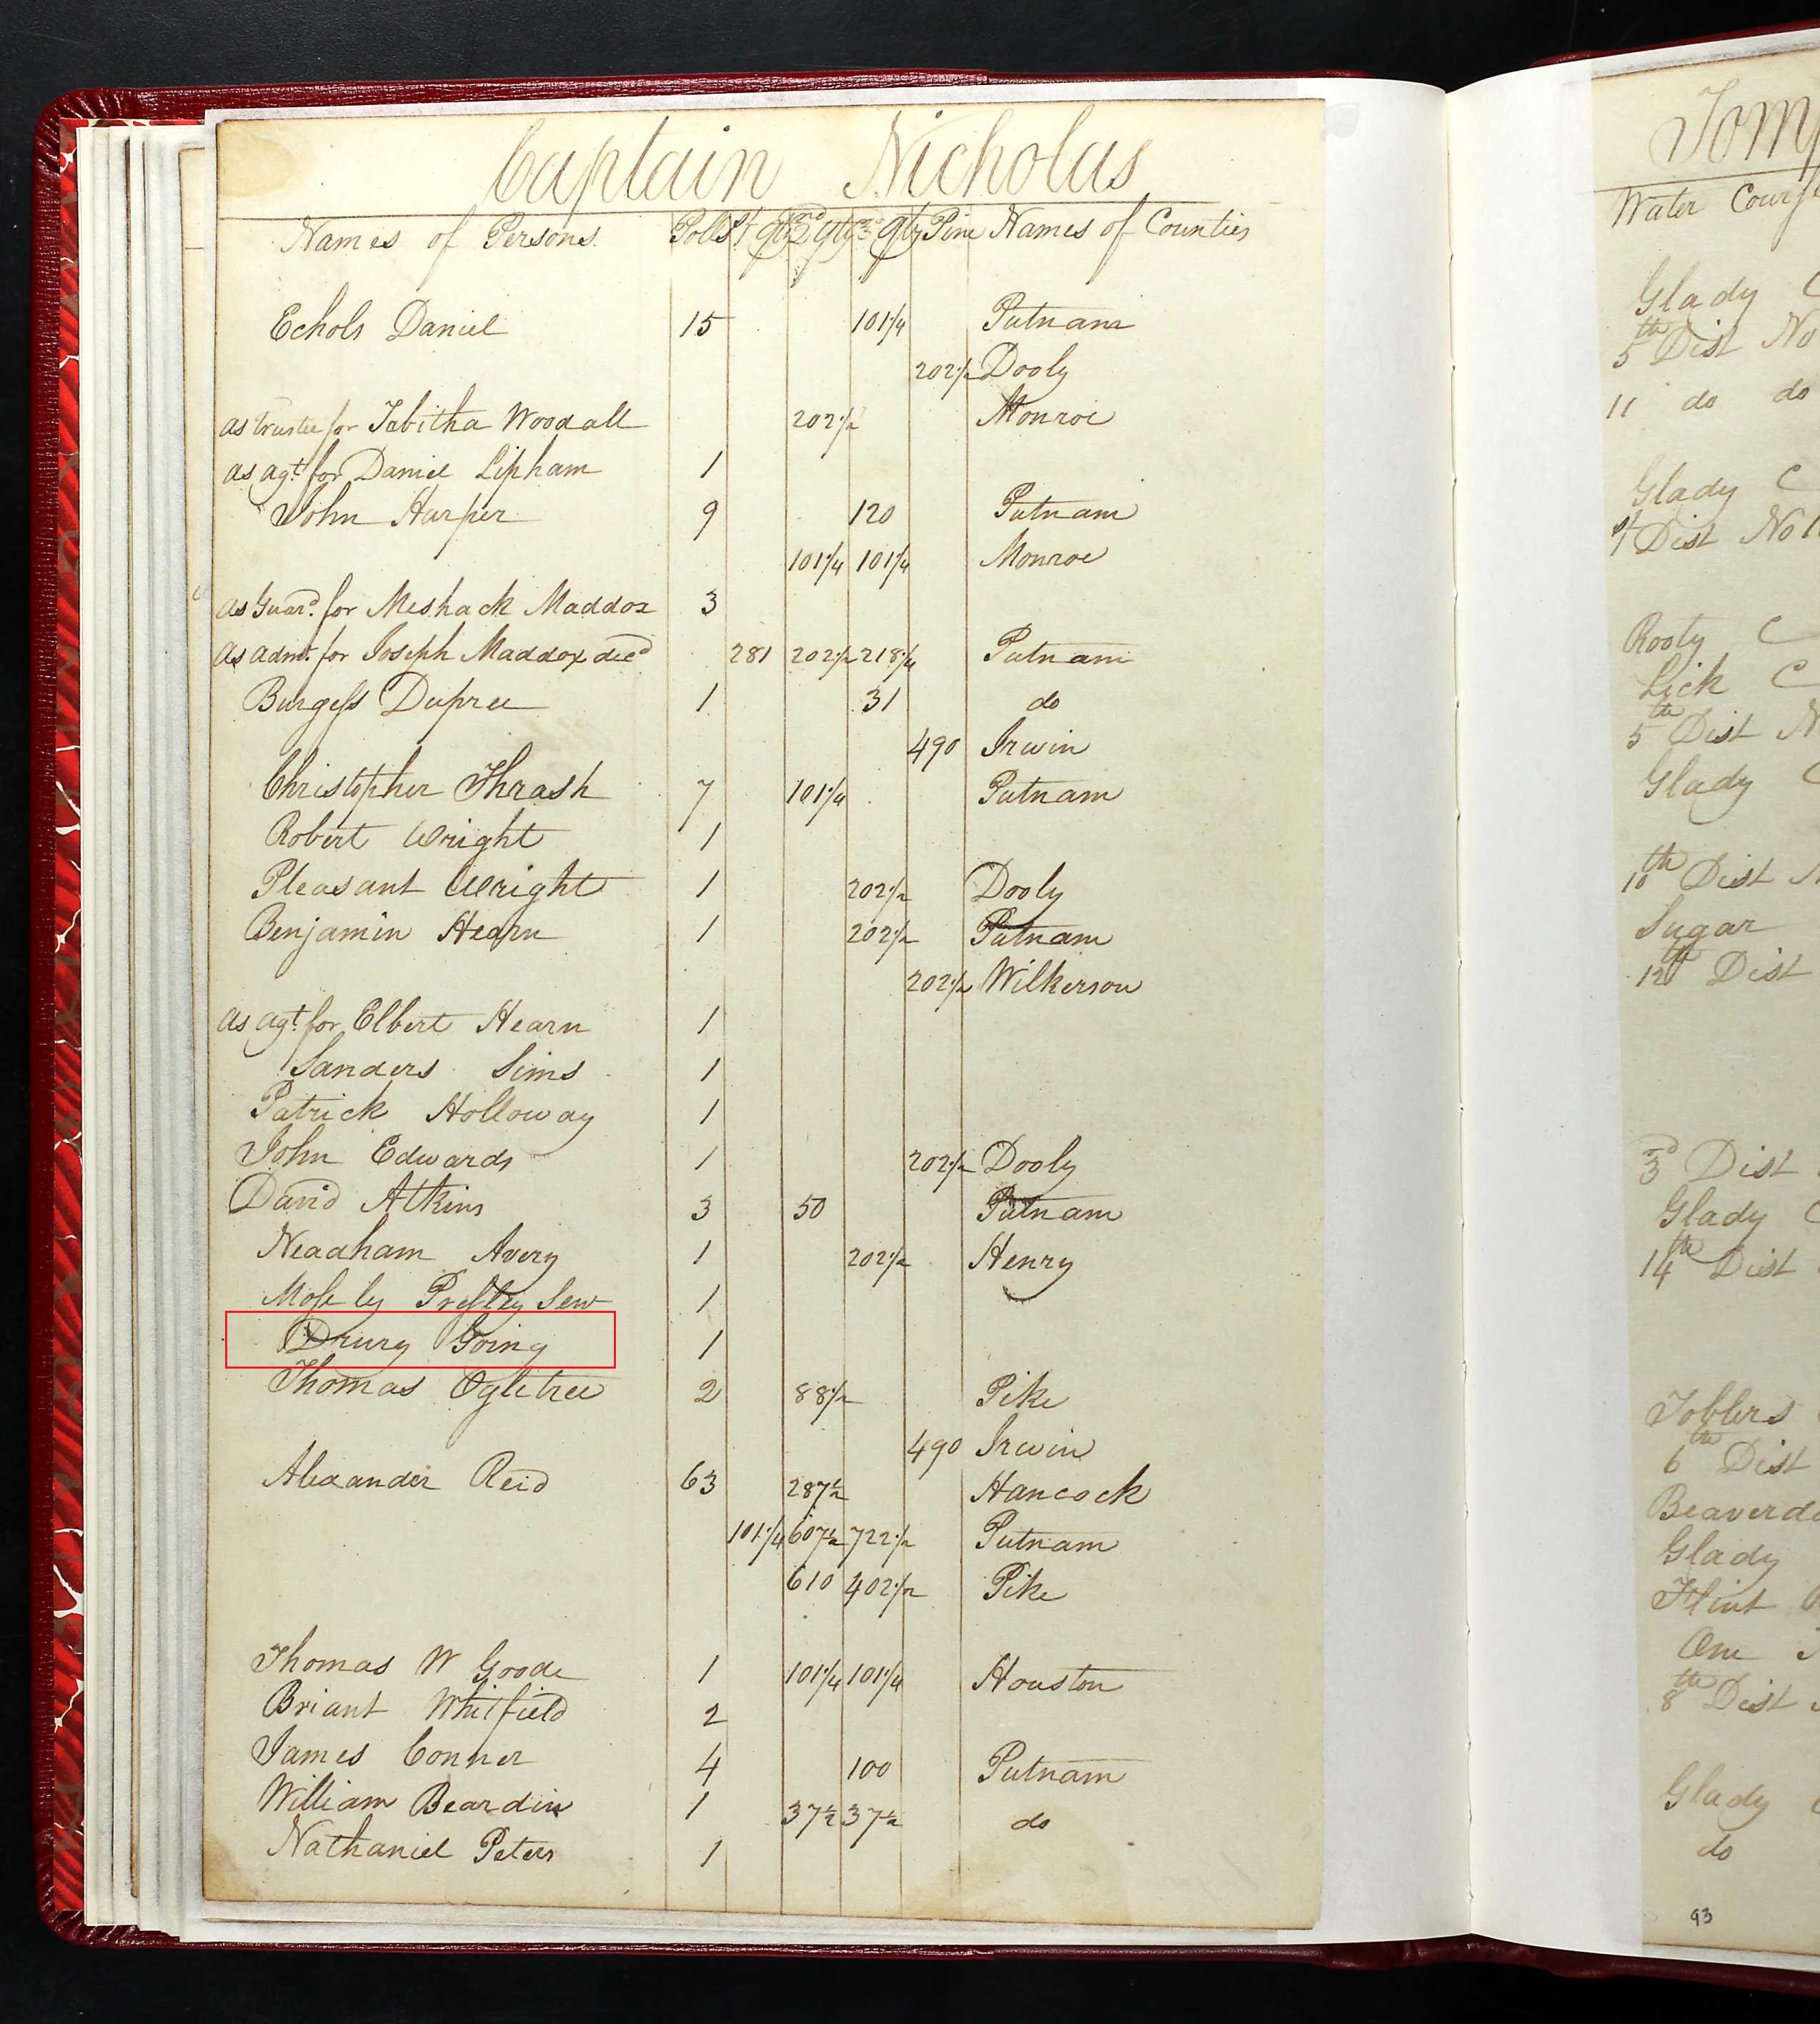 Captain Nicholas
Names of Persons Polls 1st qty 2nd qty 3d qty Pine Names of Counties
Echols Daniel 15 101 1/4 Putnam
202 1/2 Dooly
as trustee for Tabitha Woodall 202 1/2 Monroe
as agt. for Daniel Lipham 1
John Harper 9 120 Putnam
101 1/4 101 1/4 Monroe
as Guard. for Meshack Maddox 3
as admr. for Joseph Maddox decd 281 202 1/2 218 1/4 Putnam
Burgess Dupree 1 31 do
490 Irwin
Christopher Thrash 7 101 1/4 Putnam
Robert Wright 1
Pleasant Wright 1 202 1/2 Dooly
Benjamin Hearn 1 202 1/2 Putnam
202 1/2 Wilkerson
as agt. for Elbert Hearn 1
Sanders Sims 1
Patrick Holloway 1
John Edwards 1 202 1/2 Dooly
David Atkins 3 50 Putnam
Neadham Avery 1 202 1/2 Henry
Mosely Presley Senr 1
Drury Going 1
Thomas Ogletree 2 88 1/2 Pike
490 Irwin
Alexander Reid 63 287 1/2 Hancock
101 1/4 607 1/2 722 1/2 Putnam
610 402 1/2 Pike
Thomas W Goode 1 101 1/4 101 1/4 Houston
Briant Whitfield 2
James Conner 4 100 Putnam
William Beardin 1 37 1/2 37 1/2 do
Nathaniel Peters 1
Water
Glady C
5th Dist No
11 do do
Glady C
1st Dist No 1
Rooty C
Lick C
5th Dist N
Glady C
10th Dist
Sugar
12th Dist
3d Dist
Glady C
14th Dist
Toblers
6th Dist
Glady
Flint
One
8th Dist
Glady
do
93